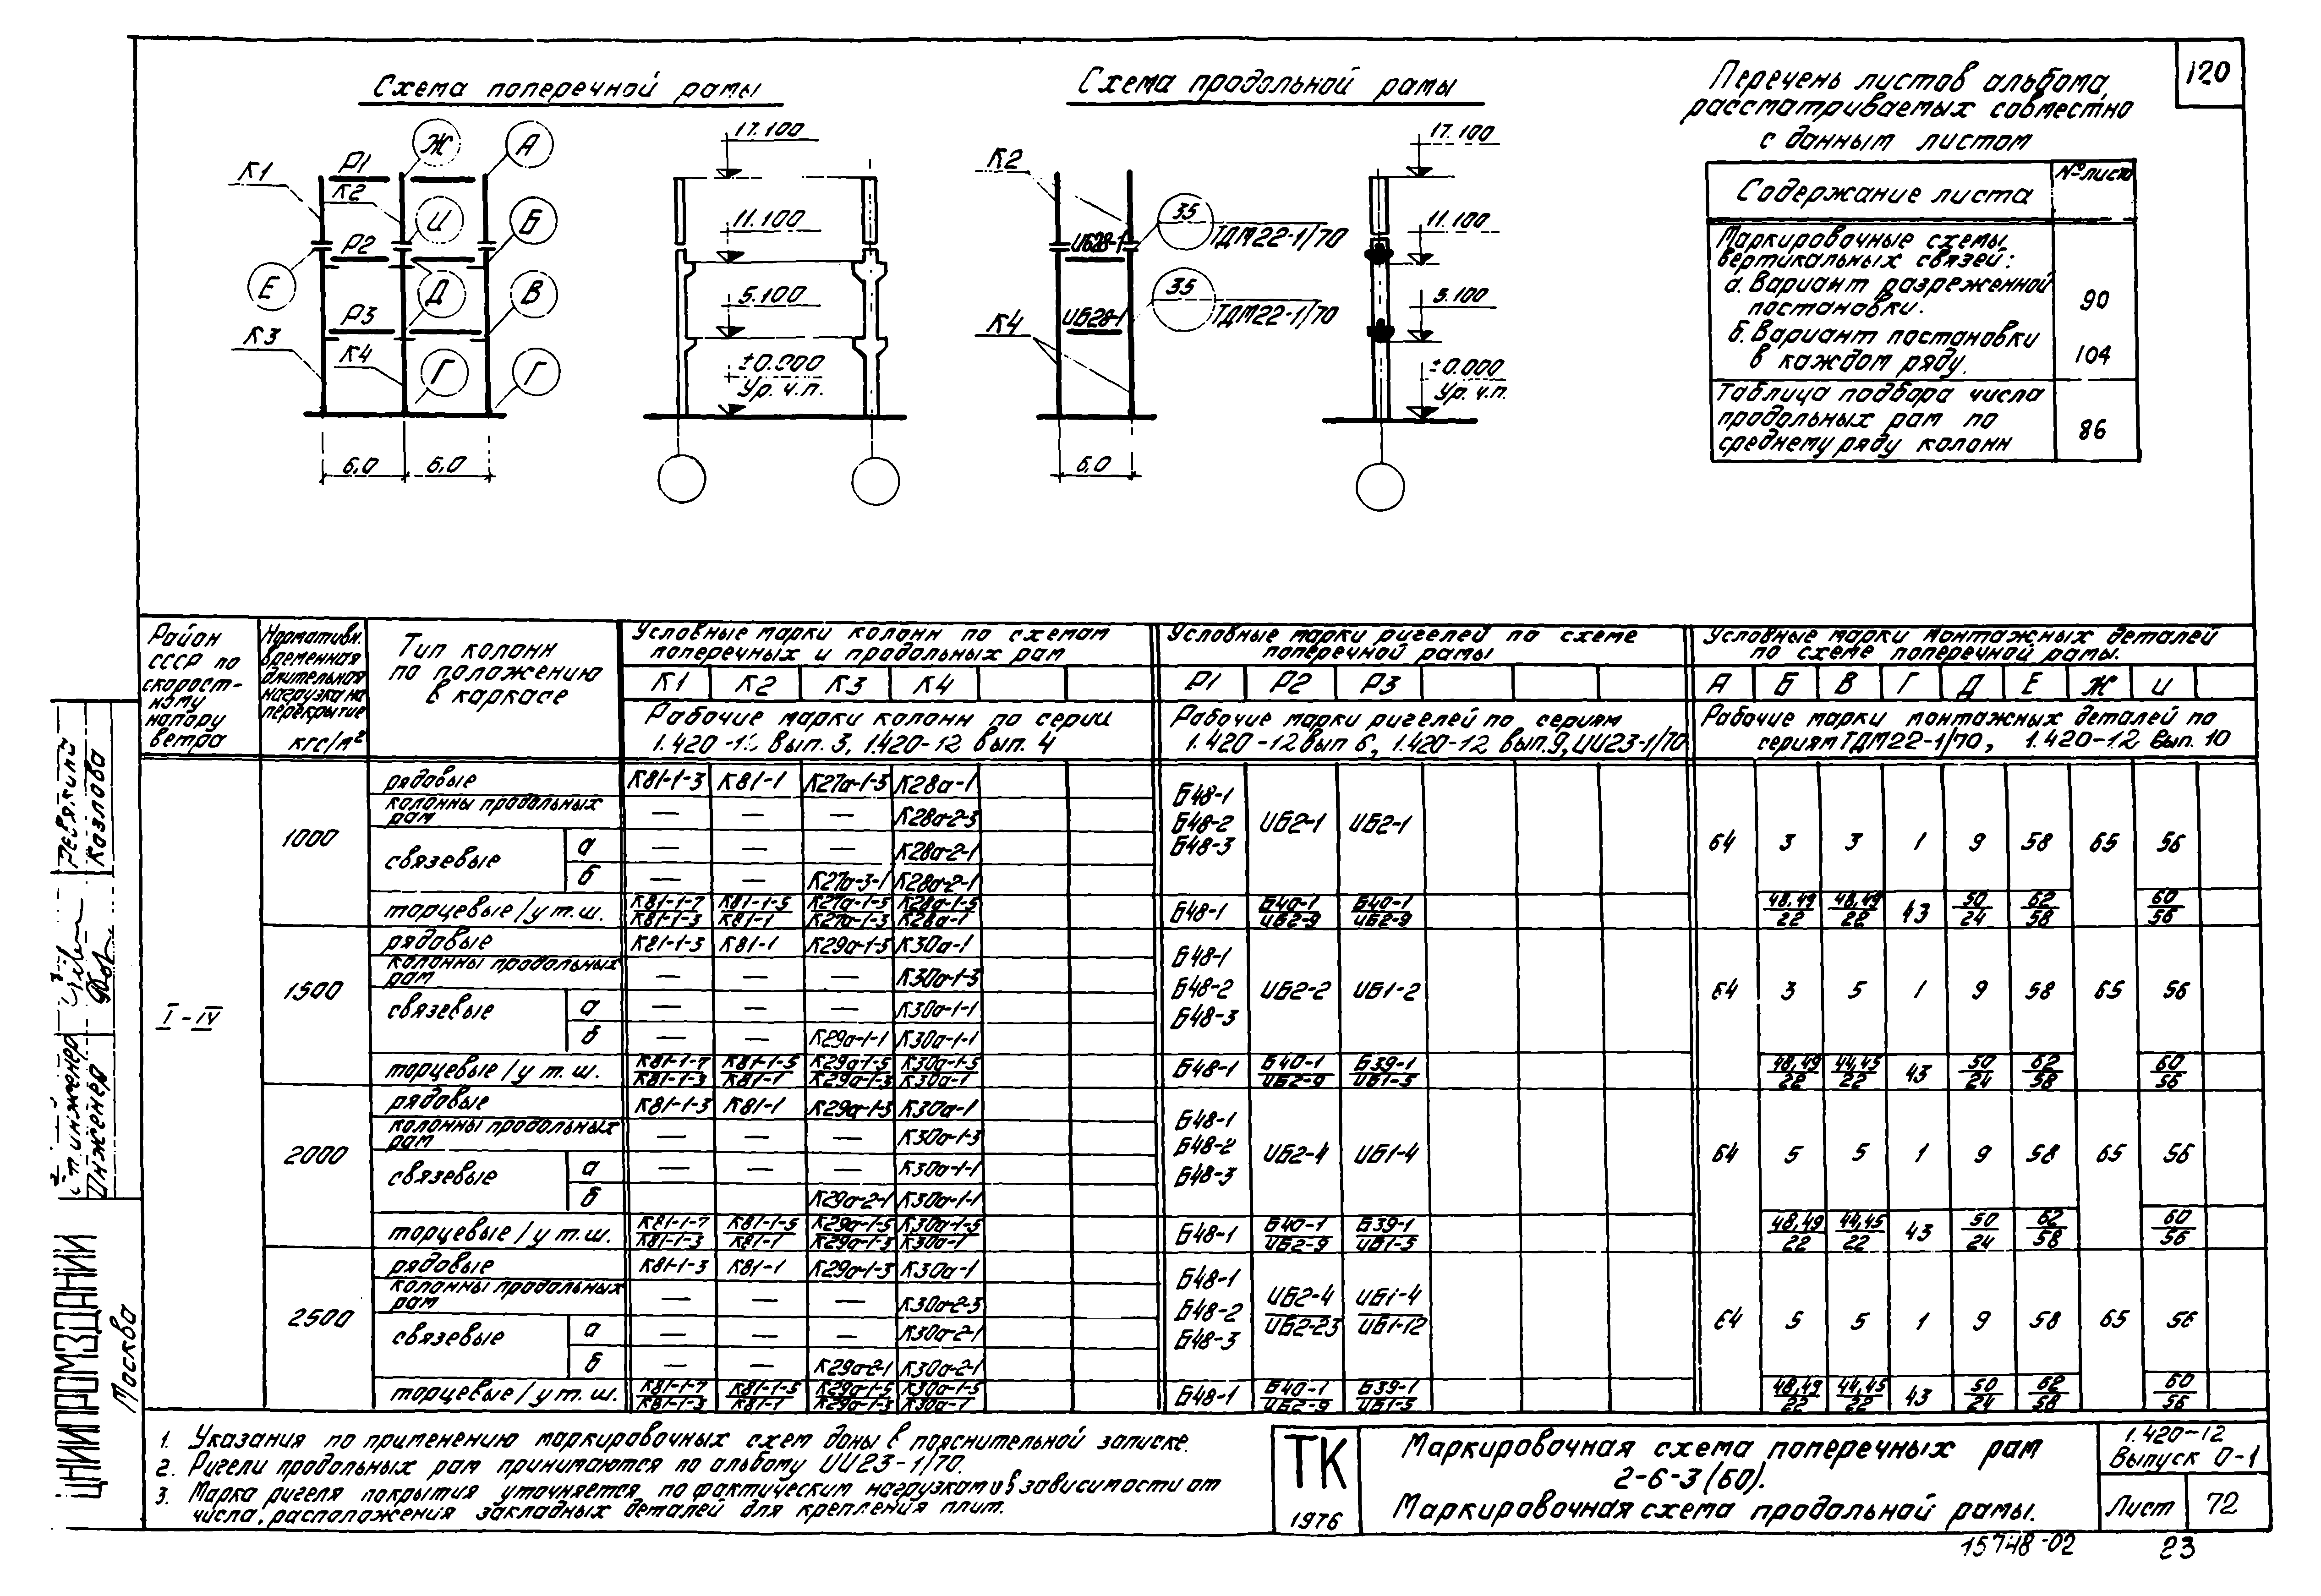 120
Схема поперечной рамы
Схема продольной рамы
Перечень листов альбома,
рассматриваемых совместно
с данным листом
Содержание листа
№ листа
Маркировочные схемы
вертикальных связей:
а. Вариант разреженной
постановки.
90
б. Вариант постановки
в каждом ряду.
104
Таблица подбора числа
продольных рам по
среднему ряду колонн
86
К1 Р1 К2 Ж А
И Б
Р2
Е Д В
Р3
К3 К4 Г Г
6,0 6,0
17.100
11.100
5.100
±0.000
Ур. ч.п.
К2
ИБ28-1
35
ТДМ22-1/70
К4
ИБ28-1
35
ТДМ22-1/70
6,0
17.100
11.100
5.100
±0.000
Ур. ч.п.
Район СССР по скорост-ному напору ветра
Нормативн. временная длительная нагрузка на перекрытие кгс/м²
Тип колонн по положению в каркасе
Условные марки колонн по схемам
поперечных и продольных рам
Условные марки ригелей по схеме
поперечной рамы
Условные марки монтажных деталей
по схеме поперечной рамы.
К1 К2 К3 К4
Р1 Р2 Р3
А Б В Г Д Е Ж И
Рабочие марки колонн по серии
1.420-12 вып. 3, 1.420-12 вып. 4
Рабочие марки ригелей по сериям
1.420-12 вып 6, 1.420-12 вып.9, ИИ23-1/70
Рабочие марки монтажных деталей по
сериям ТДМ22-1/70, 1.420-12 вып. 10
I-IV
1000
рядовые К81-1-3 К81-1 К27а-1-3 К28а-1
колонны продольных рам — — — К28а-2-3
связевые а — — — К28а-2-1
б — — К27а-3-1 К28а-2-1
Б48-1 Б48-2 Б48-3 ИБ2-1 ИБ2-1
64 3 3 1 9 58 65 56
торцевые/у т.ш. К81-1-7/К81-1-3 К81-1-5/К81-1 К27а-1-5/К27а-1-3 К28а-1-5/К28а-1 Б48-1 Б40-1/ИБ2-9 Б40-1/ИБ2-9 48,49/22 48,49/22 43 50/24 62/58 60/56
1500
рядовые К81-1-3 К81-1 К29а-1-3 К30а-1
колонны продольных рам — — — К30а-1-3
связевые а — — — К30а-1-1
б — — К29а-1-1 К30а-1-1
Б48-1 Б48-2 Б48-3 ИБ2-2 ИБ1-2
64 3 5 1 9 58 65 56
торцевые/у т.ш. К81-1-7/К81-1-3 К81-1-5/К81-1 К29а-1-5/К29а-1-3 К30а-1-5/К30а-1 Б48-1 Б40-1/ИБ2-9 Б39-1/ИБ1-5 48,49/22 44,45/22 43 50/24 62/58 60/56
2000
рядовые К81-1-3 К81-1 К29а-1-3 К30а-1
колонны продольных рам — — — К30а-1-3
связевые а — — — К30а-1-1
б — — К29а-2-1 К30а-1-1
Б48-1 Б48-2 Б48-3 ИБ2-4 ИБ1-4
64 5 5 1 9 58 65 56
торцевые/у т.ш. К81-1-7/К81-1-3 К81-1-5/К81-1 К29а-1-5/К29а-1-3 К30а-1-5/К30а-1 Б48-1 Б40-1/ИБ2-9 Б39-1/ИБ1-5 48,49/22 44,45/22 43 50/24 62/58 60/56
2500
рядовые К81-1-3 К81-1 К29а-1-3 К30а-1
колонны продольных рам — — — К30а-2-3
связевые а — — — К30а-2-1
б — — К29а-2-1 К30а-2-1
Б48-1 Б48-2 Б48-3 ИБ2-4/ИБ2-23 ИБ1-4/ИБ1-12
64 5 5 1 9 58 65 56
торцевые/у т.ш. К81-1-7/К81-1-3 К81-1-5/К81-1 К29а-1-5/К29а-1-3 К30а-1-5/К30а-1 Б48-1 Б40-1/ИБ2-9 Б39-1/ИБ1-5 48,49/22 44,45/22 43 50/24 62/58 60/56
1. Указания по применению маркировочных схем даны в пояснительной записке.
2. Ригели продольных рам принимаются по альбому ИИ23-1/70.
3. Марка ригеля покрытия уточняется по фактическим нагрузкам и в зависимости от
числа, расположения закладных деталей для крепления плит.
ТК
1976
Маркировочная схема поперечных рам
2-6-3 (60).
Маркировочная схема продольной рамы.
1.420-12
Выпуск 0-1
Лист 72
15748-02
23
ЦНИИПРОМЗДАНИЙ
Москва
Ст. инженер
Инженер
Ревякина
Козлова